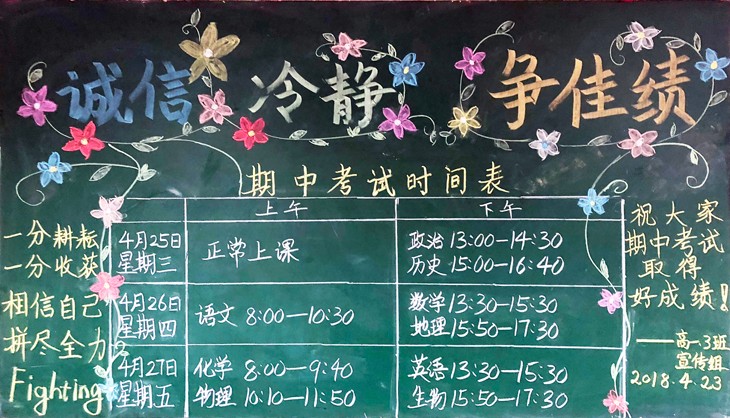 诚信 冷静 争佳绩
期中考试时间表
上午 下午
4月25日
星期三
正常上课
政治 13:00-14:30
历史 15:00-16:40
4月26日
星期四
语文 8:00—10:30
数学 13:30-15:30
地理 15:50-17:30
4月27日
星期五
化学 8:00—9:40
物理 10:10-11:50
英语 13:30-15:30
生物 15:50-17:30
一分耕耘
一分收获
相信自己
拼尽全力
Fighting
祝大家
期中考试
取得
好成绩!
——高一.3班
宣传组
2018.4.23